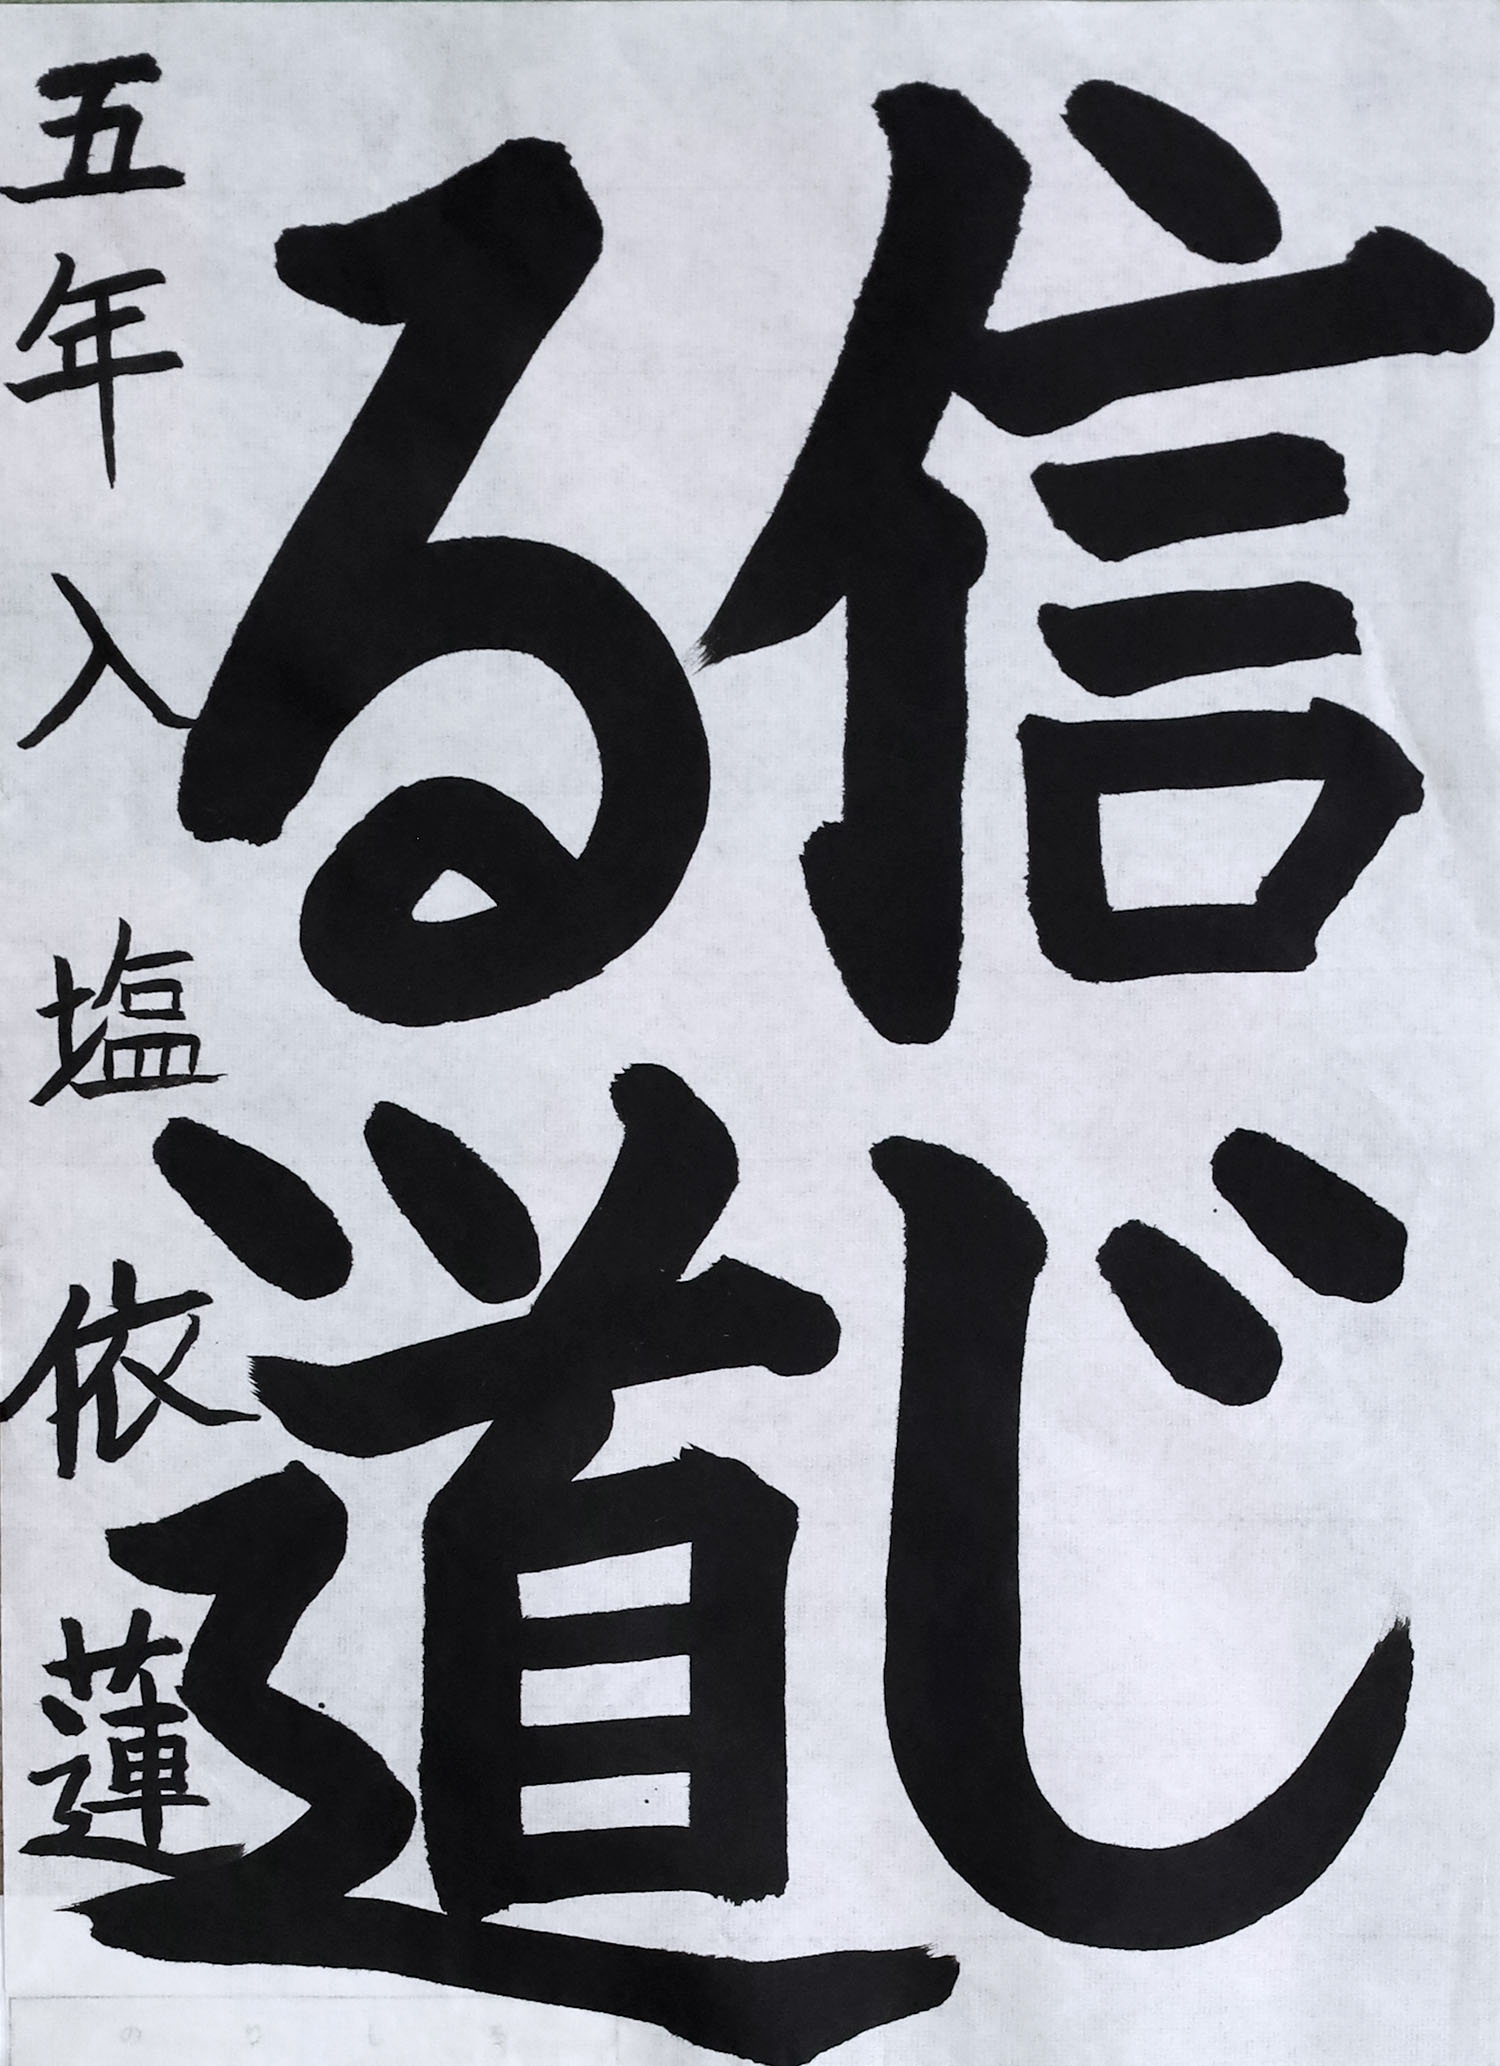 信じ
る道
五年 入塩依蓮